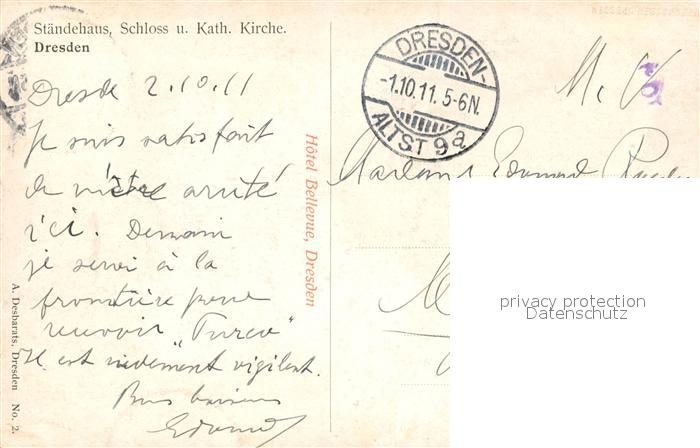 Ständehaus, Schloss u. Kath. Kirche.
Dresden
Dresde 2.10.11
Je suis satisfait
de m'être arrêté
ici. Demain
je serai à la
frontière pour
recevoir „Turco"
Il est rudement vigilant.
Bons baisers
Edouard
Hôtel Bellevue, Dresden
A. Desbarats, Dresden No. 2.
DRESDEN-
-1.10.11. 5-6N.
ALTST. 9 a
M. V.
Madame Edouard
privacy protection
Datenschutz